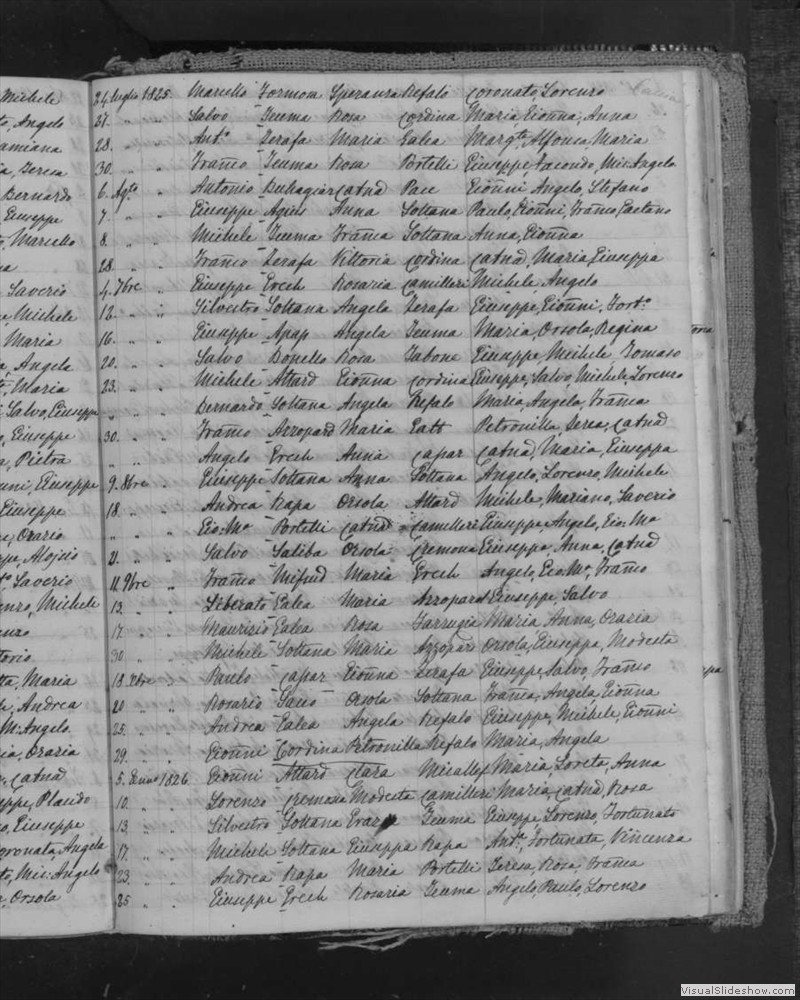 Michele
Angelo
Damiana
Teresa
Bernardo
Giuseppe
Marcello
Saverio
Michele
Maria
Angela
Maria
Salvo, Giuseppe
Giuseppe
Pietra
Giuseppe
Giuseppe
Orazio
Aloisio
Saverio
Michele
Maria
Andrea
M: Angelo
Orazia
Catnd
Placido
Giuseppe
Coronata, Angela
Mic: Angelo
Orsola
24 Luglio 1825 Marcello Formosa Speranza Refalo Coronato, Lorenzo
27. " " Salvo Zeuma Rosa Cordina Maria Gionna, Anna
28. " " Ant.o Zerafa Maria Galea Margta, Alfonsa, Maria
30. " " Franco Zeuma Rosa Portelli Giuseppe, Facondo, Mic: Angelo
6. Agto " Antonio Buhagiar Catnd Pace Gionni Angelo, Stefano
7. " " Giuseppe Agius Anna Soltana Paulo, Gionni, Franco, Gaetano
8. " " Michele Zeuma Franca Soltana Anna, Gionna
28. " " Franco Zerafa Vittoria Cordina Catnd, Maria, Giuseppa
4. 7bre " Giuseppe Grech Rosaria Camilleri Michele Angelo
12. " " Silvestro Soltana Angela Zerafa Giuseppe, Gionni, Fort.o
16. " " Giuseppe Apap Angela Zeuma Maria, Orsola, Regina
20. " " Salvo Bonello Rosa Zabone Giuseppe, Michele, Tomaso
23. " " Michele Attard Gionna Cordina Giuseppe, Salvo, Michele, Lorenzo
" " " Bernardo Soltana Angela Refalo Maria, Angela, Franca
30. " " Franco Azzopard Maria Gatt Petronilla, Teresa, Catnd
" " " Angelo Grech Anna Capar Catnd, Maria, Giuseppa
9. 8bre " Giuseppe Soltana Anna Soltana Angelo, Lorenzo, Michele
18. " " Andrea Rapa Orsola Attard Michele, Mariano, Saverio
" " " Gio: Ma Portelli Catnd Camilleri Giuseppe, Angelo, Gio: Ma
21. " " Salvo Saliba Orsola Cremona Giuseppa, Anna, Catnd
11. 9bre " Franco Mifsud Maria Grech Angelo, Gio: Ma, Franco
13. " " Liberato Galea Maria Azzopard Giuseppe, Salvo
17. " " Maurizio Galea Rosa Farrugia Maria Anna, Orazia
30. " " Michele Soltana Maria Azzopard Orsola, Giuseppa, Modesta
18. Xbre " Paulo Capar Gionna Zerafa Giuseppe, Salvo, Franco
20 " " Rosario Orsola Soltana Franca, Angela, Gionna
25. " " Andrea Galea Angela Refalo Giuseppe, Michele, Gionni
29. " " Gionni Cordina Petronilla Refalo Maria, Angela
5. Genno 1826 Gionni Attard Clara Micallef Maria, Loreta, Anna
10. " " Lorenzo Cremona Modesta Camilleri Maria, Catnd, Rosa
13 " " Silvestro Soltana Grazia Zeuma Giuseppe, Lorenzo, Fortunato
17. " " Michele Soltana Giuseppa Rapa Ant.a, Fortunata, Vincenza
23. " " Andrea Rapa Maria Portelli Teresa, Rosa, Franca
25 " " Giuseppe Grech Rosaria Zeuma Angelo, Paulo, Lorenzo
VisualSlideshow.com